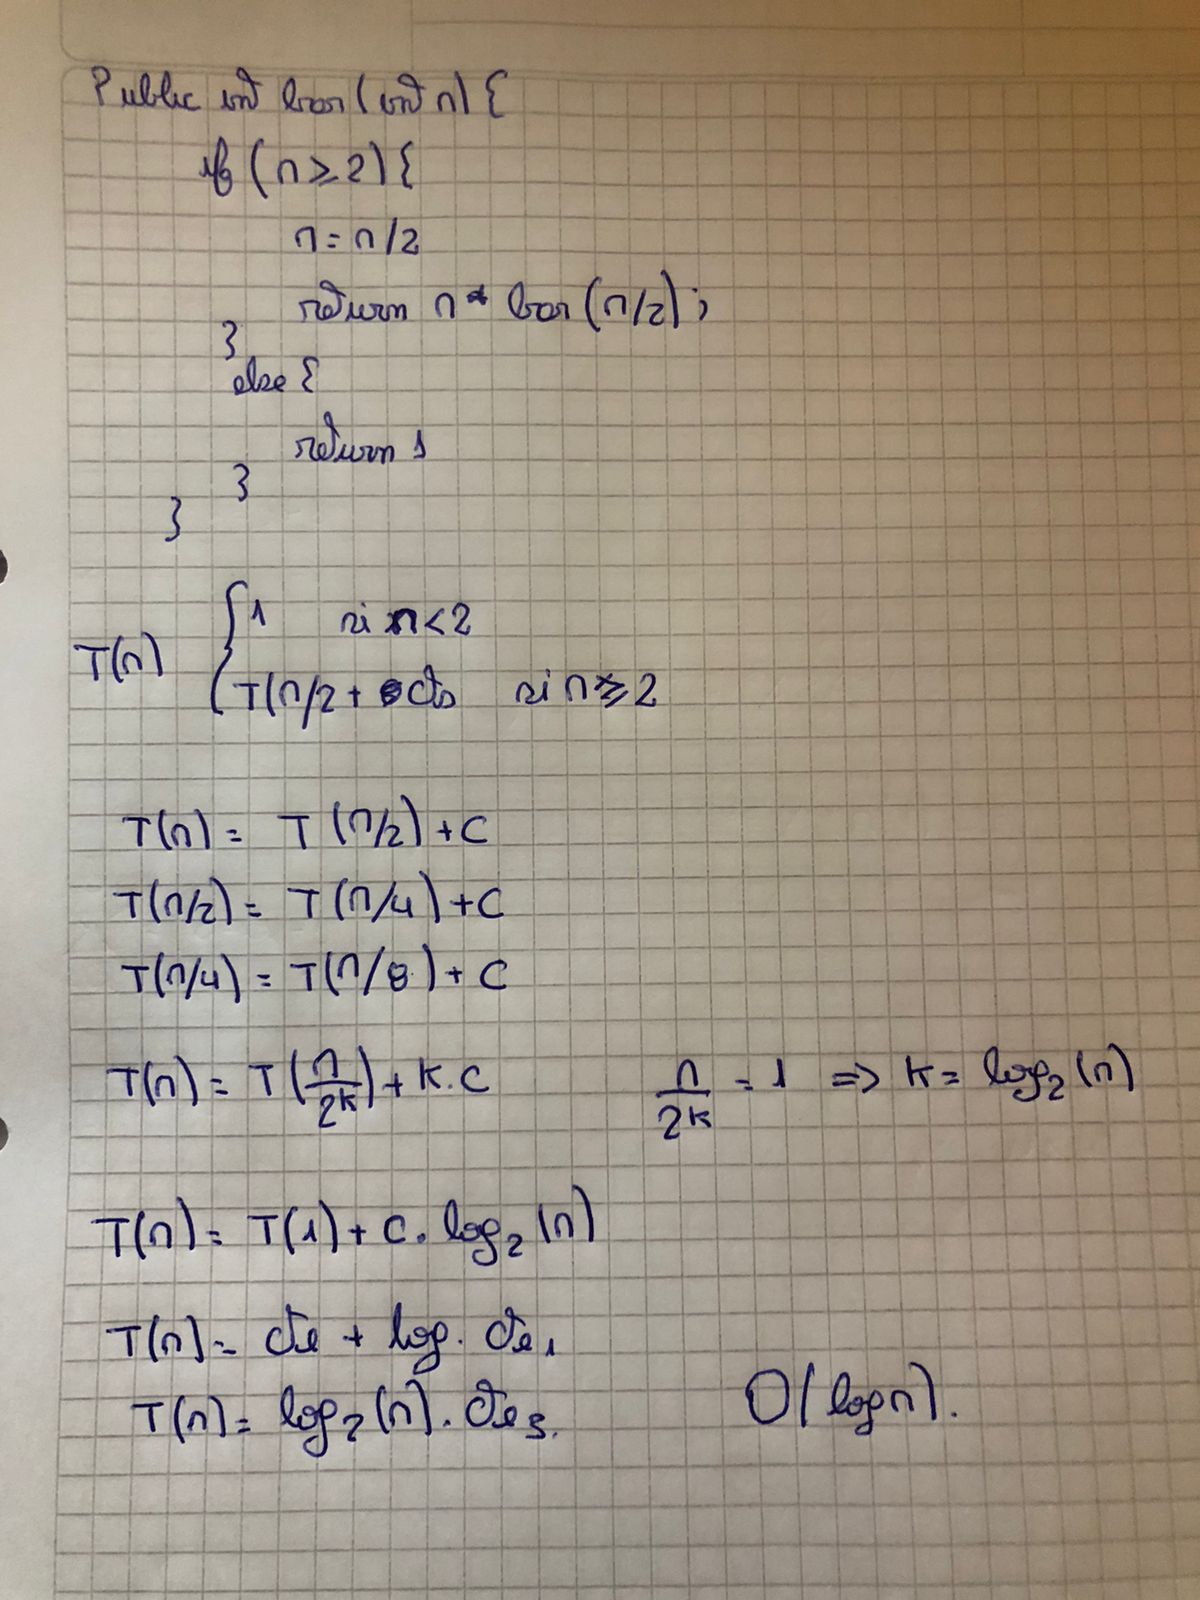 Public int bar(int n) {
if (n ≥ 2) {
n = n/2
return n * bar(n/2);
}
else {
return 1
}
}
T(n) { 1 si n < 2
T(n/2 + cte si n ≥ 2
T(n) = T(n/2) + C
T(n/2) = T(n/4) + C
T(n/4) = T(n/8) + C
T(n) = T(n/2^k) + K.C n/2^k = 1 => K = log₂(n)
T(n) = T(1) + C . log₂(n)
T(n) = cte + log. cte₁
T(n) = log₂(n) . cte₃. O(log n).